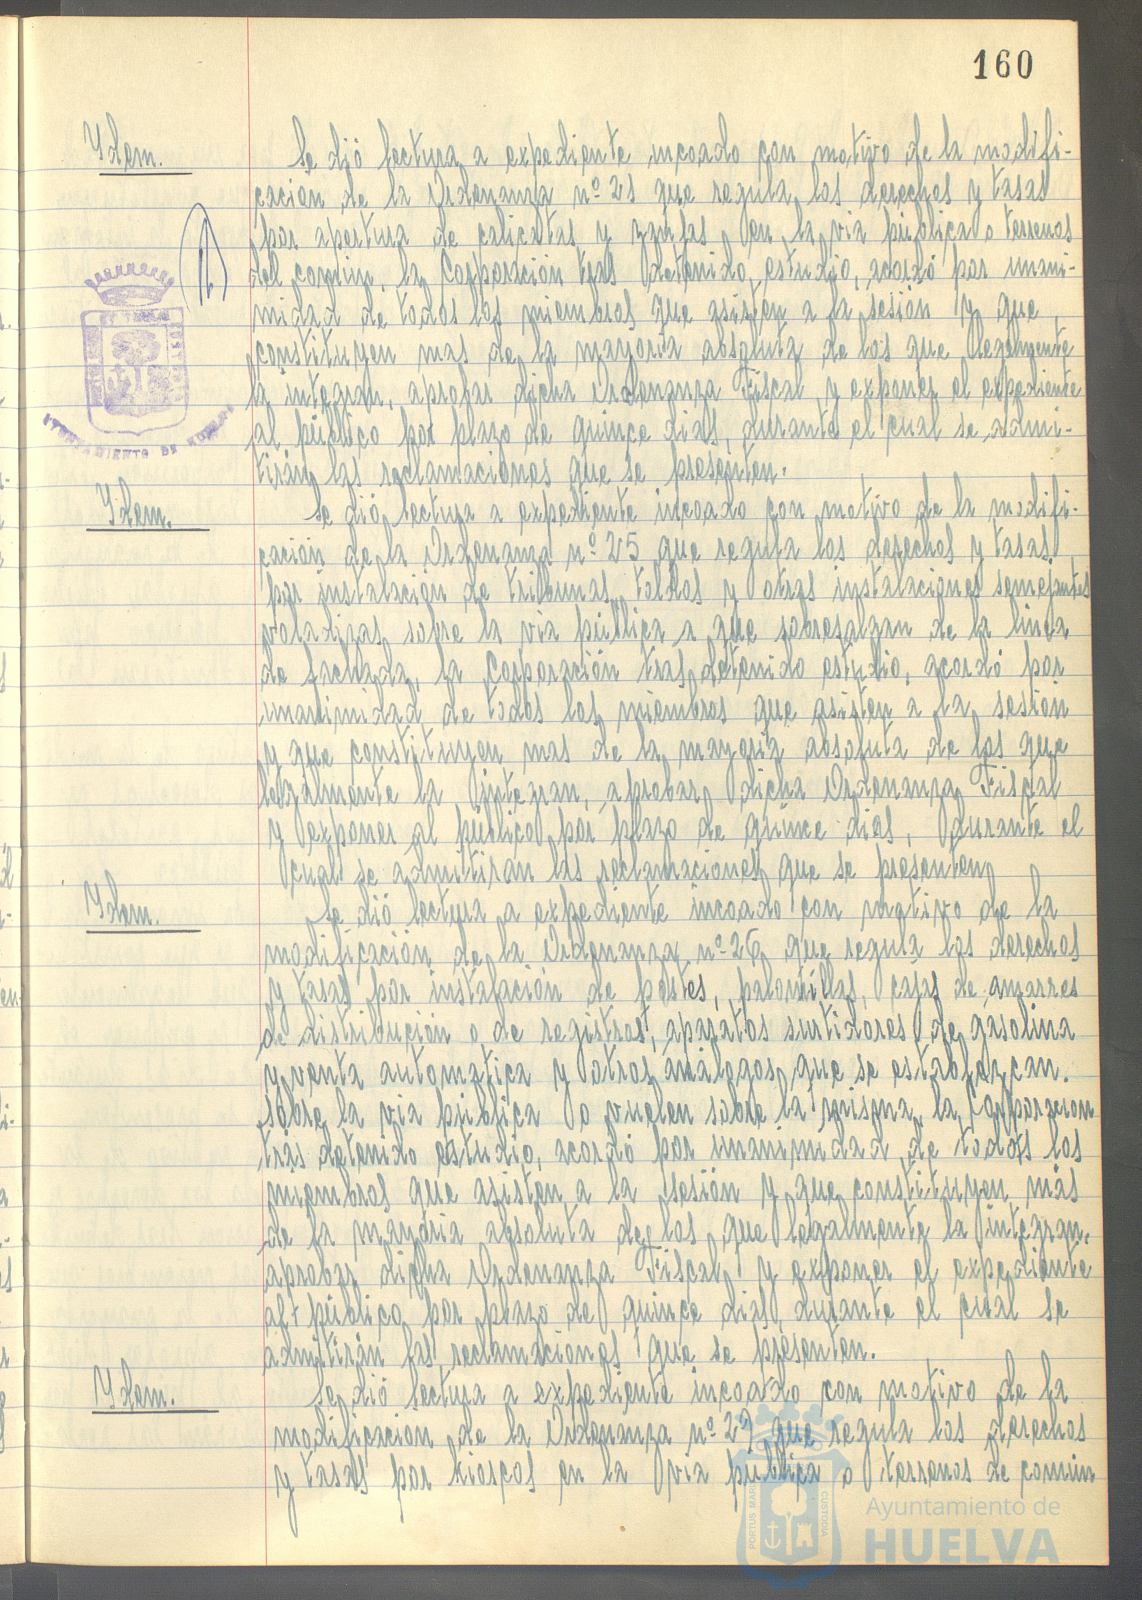 160
Ydem.
Se dió lectura a expediente incoado con motivo de la modifi-
cación de la Ordenanza nº 21 que regula los derechos y tasas
por apertura de calicatas y zanjas en la via pública o terrenos
del común, la Corporación tras detenido estudio, acordó por unani-
midad de todos los miembros que asisten a la sesión y que
constituyen mas de la mayoria absoluta de los que legalmente
la integran, aprobar dicha Ordenanza Fiscal y exponer el expediente
al público por plazo de quince dias, durante el cual se admi-
tirán las reclamaciones que se presenten.
AYUNTAMIENTO DE HUELVA
Ydem.
Se dió lectura a expediente incoado con motivo de la modifi-
cación de la Ordenanza nº 25 que regula los derechos y tasas
por instalación de tribunas, toldos y otras instalaciones semejantes
voladizas sobre la via pública o que sobresalgan de la linea
de fachada, la Corporación tras detenido estudio, acordó por
unanimidad de todos los miembros que asisten a la sesión
y que constituyen mas de la mayoria absoluta de los que
legalmente la integran, aprobar dicha Ordenanza Fiscal
y exponer al público por plazo de quince dias, durante el
cual se admitirán las reclamaciones que se presenten
Ydem.
Se dió lectura a expediente incoado con motivo de la
modificación de la Ordenanza nº 26 que regula los derechos
y tasas por instalación de postes, palomillas, cajas de amarres
de distribución o de registros, aparatos surtidores de gasolina
y venta automatica y otros análogos que se establezcan.
sobre la via pública o vuelen sobre la misma, la Corporación
tras detenido estudio, acordó por unanimidad de todos los
miembros que asisten a la sesión y que constituyen más
de la mayoria absoluta de los que legalmente la integran,
aprobar dicha Ordenanza Fiscal y exponer el expediente
al público por plazo de quince dias, durante el cual se
admitirán las reclamaciones que se presenten.
Ydem.
Se dió lectura a expediente incoado con motivo de la
modificación de la Ordenanza nº 27 que regula los derechos
y tasas por kioscos en la via pública o terrenos de común
PORTUS MARIS
CUSTODIA
Ayuntamiento de
HUELVA